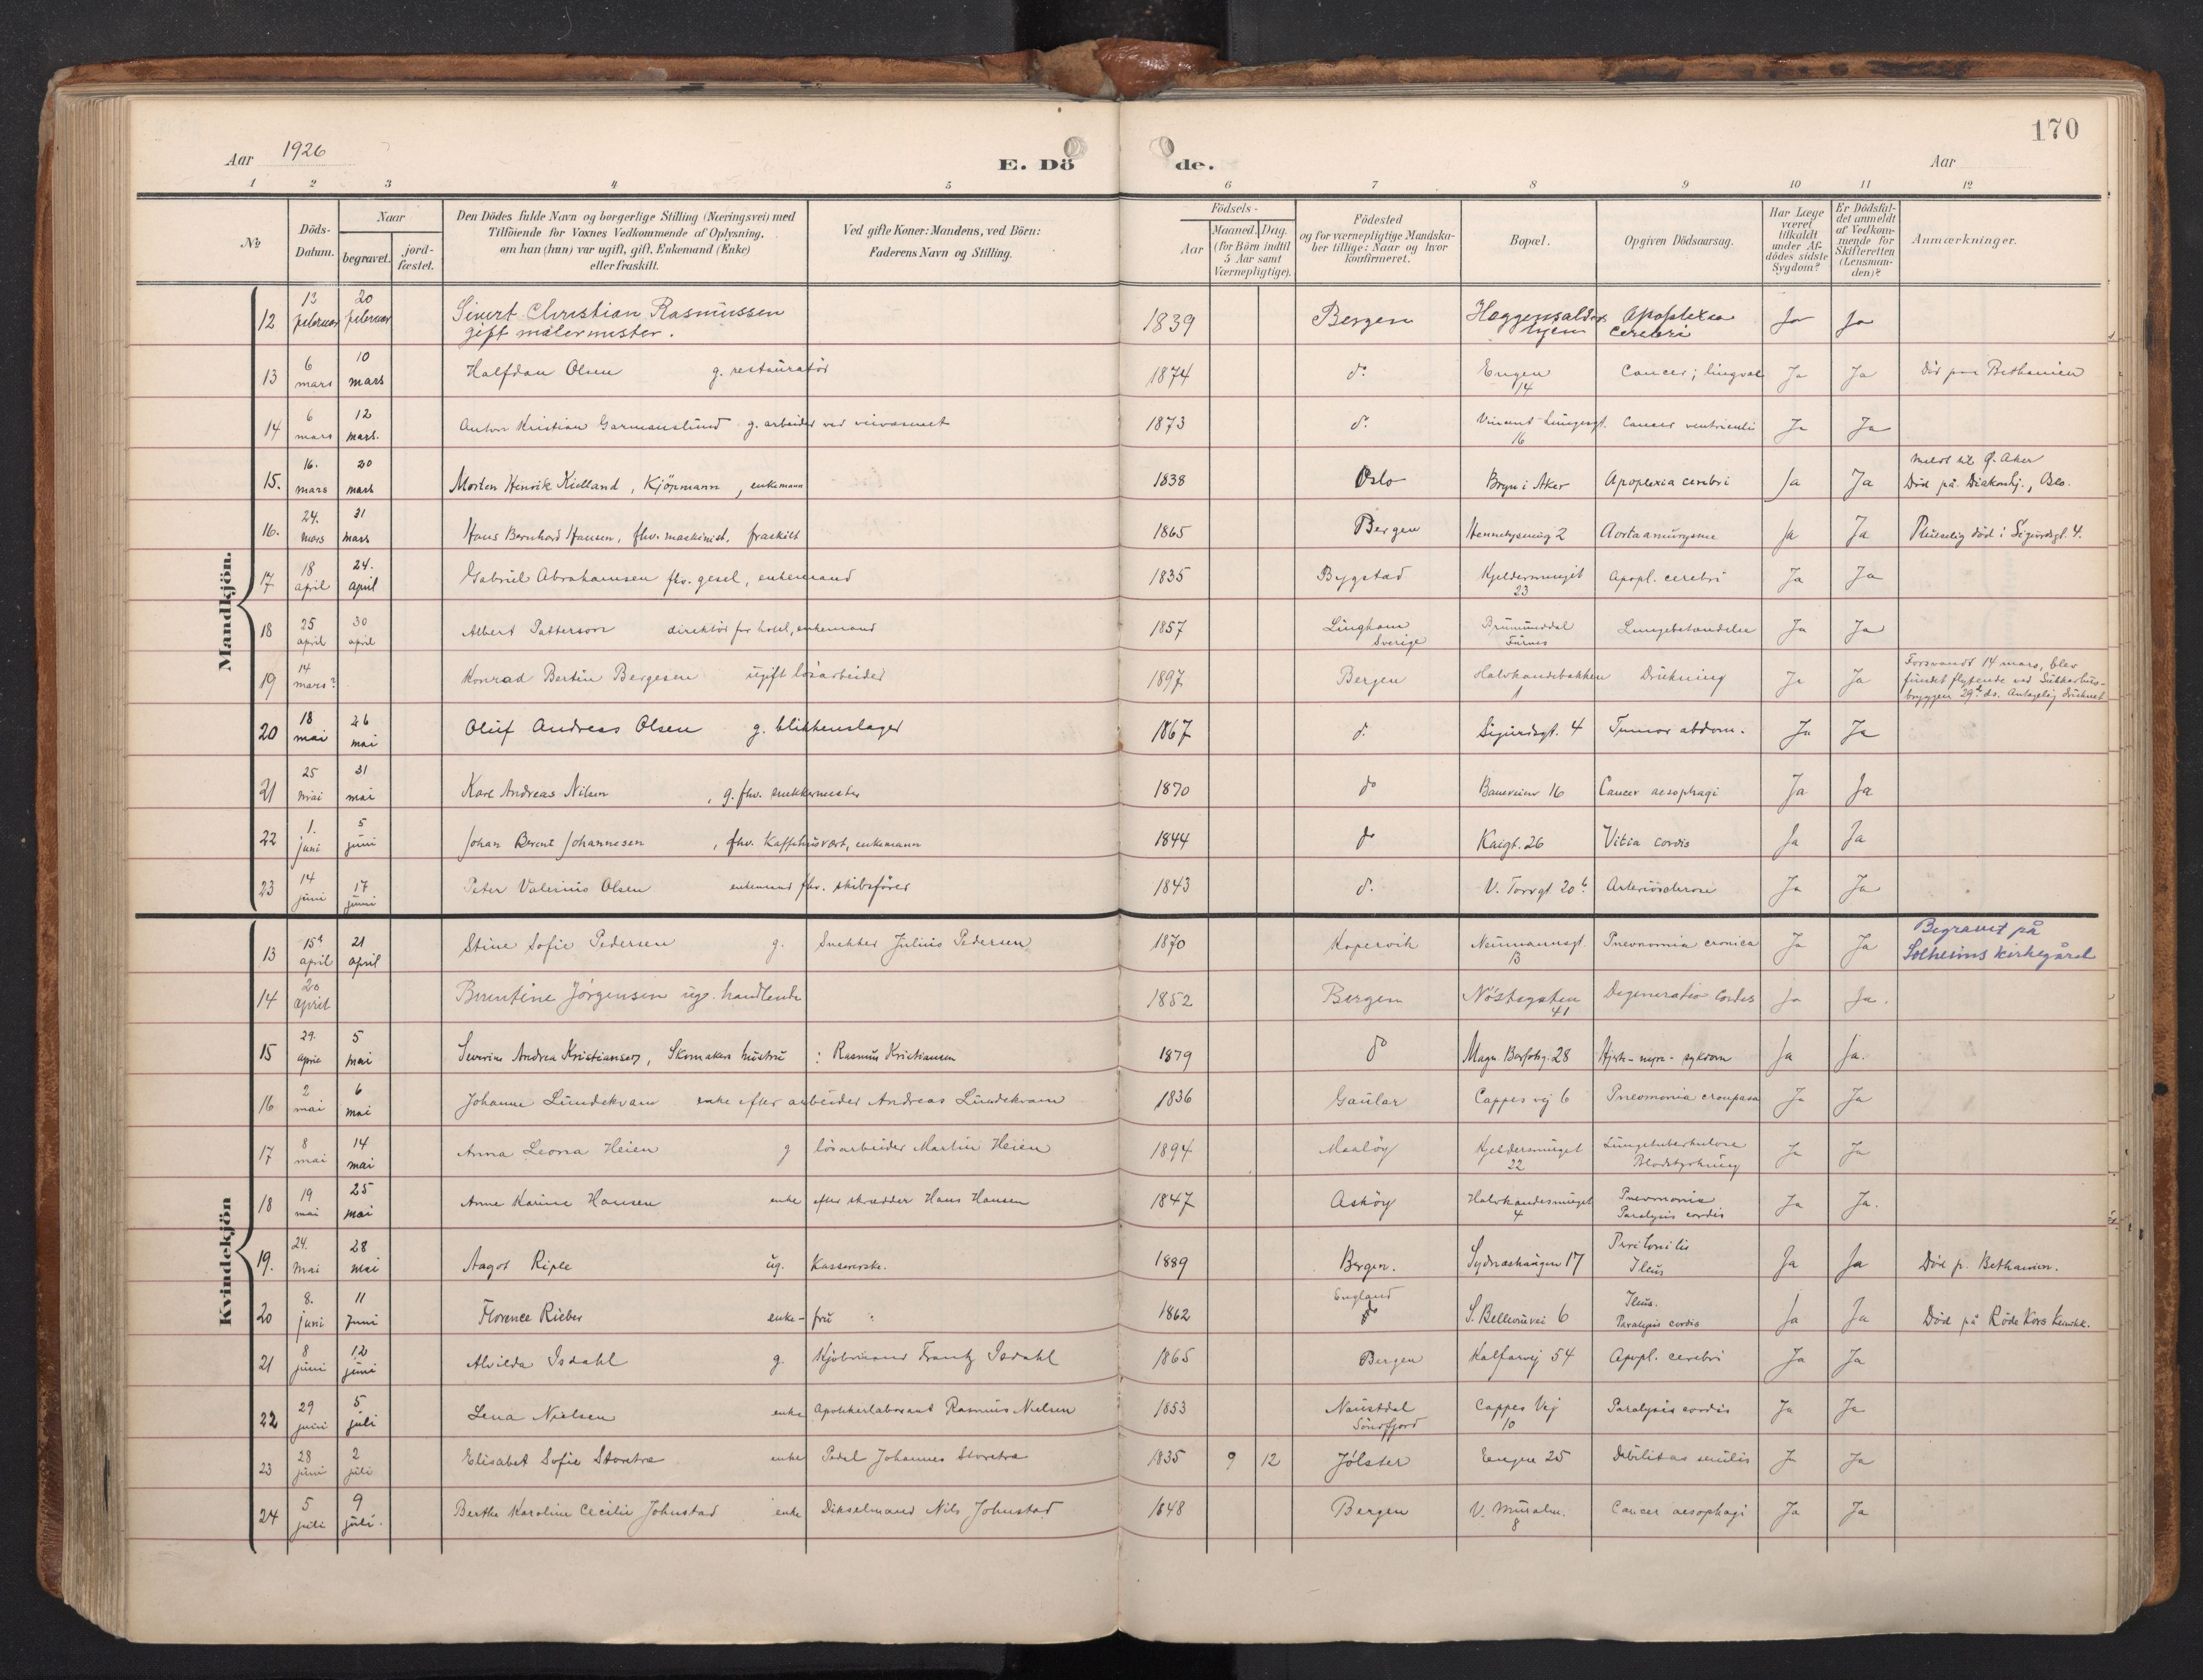 170
Aar 1926
E. Dö
de.
Aar
1 2 3 4 5 6 7 8 9 10 11 12
No
Döds-Datum.
Naar
begravet.
jord-fæstet.
Den Dödes fulde Navn og borgerlige Stilling (Næringsvei) med
Tilföiende for Voxnes Vedkommende af Oplysning,
om han (hun) var ugift, gift, Enkemand (Enke)
eller fraskilt.
Ved gifte Koner: Mandens, ved Börn:
Faderens Navn og Stilling.
Födsels-
Aar
Maaned. Dag.
(for Börn indtil
5 Aar samt
Værnepligtige).
Födested
og for værnepligtige Mandska-
ber tillige: Naar og hvor
konfirmeret.
Bopæl.
Opgiven Dödsaarsag.
Har Læge
været
tilkaldt
under Af-
dödes sidste
Sygdom?
Er Dödsfal-
det anmeldt
af Vedkom-
mende for
Skifteretten
(Lensman-
den)?
Anmærkninger.
Mandkjön.
12 13 februar 20 februar Sivert Christian Rasmussen gift malermester. 1839 Bergen hjem Apoplexia cerebri Ja Ja
13 6 mars 10 mars Halfdan Olsen g. restauratör 1874 do Engen 14 Cancer; linguae Ja Ja Död paa Bethanien
14 6 mars 12 mars. Anton Kristian Garmanslund g. arbeider ved 1873 do Vincent Lungesgt. 16 Cancer ventriculi Ja Ja
15. 16. mars 20 mars Morten Henrik Kielland, Kjöpmann, enkemann 1838 Oslo Bryn i Aker Apoplexia cerebri Ja Ja meldt til Ø. Aker Död på Diakonhj., Oslo.
16. 24. mars 31 mars Hans Bernhard Hansen, fhv. maskinist, fraskilt 1865 Bergen 2 Aorta Ja Ja Pludselig död i Sigurdsgt. 4.
17 18 april 24. april Gabriel Abrahamsen fhv. gesel, enkemand 1835 Bygstad Kjeldersmuget 23 Apopl. cerebri Ja Ja
18 25 april 30 april Albert Patterson direktör for hotel, enkemand 1857 Lingham Sverige Brumunddal Furnes Lungebetændelse Ja Ja
19 14 mars? Konrad Bertin Bergesen ugift lösarbeider 1897 Bergen Halvkandebakken 1 Drukning Ja Ja Forsvandt 14 mars, blev fundet flytende ved Sukkerhus-bryggen 29de ds. Antagelig druknet
20 18 mai 26 mai Oluf Andreas Olsen g. blikkenslager 1867 do Sigurdsgt. 4 Tumor abdom. Ja Ja
21 25 mai 31 mai Karl Andreas Nilsen, g. fhv. snekkermester 1870 do Baneveien 16 Cancer aesophagi Ja Ja
22 1. juni 5 juni Johan Berent Johannesen, fhv. Kaffehusvert, enkemann 1844 do Kaigt. 26 Vitia cordis Ja Ja
23 14 juni 17 juni Peter Valerius Olsen enkemand fhv. skibsförer 1843 do V. Torvgt 20b Arteriosclerose Ja Ja
Kvindekjön
13 15de april 21 april Stine Sofie Pedersen g. Snekker Julius Pedersen 1870 Kopervik Neumannsgt. 13 Pneumonia cronica Ja Ja Begravet på Solheims kirkegård
14 20 april Berentine Jörgensen ug. handlende 1852 Bergen Nöstegaten 41 Degeneratio Cordis Ja Ja.
15 29. april 5 mai Severine Andrea Kristiansen, Skomakers hustru : Rasmus Kristiansen 1879 do Magn. Barfotsg. 28 Hjerte-nyre-sykdom Ja Ja.
16 2 mai 6 mai Johanne Lundekvam enke efter arbeider Andreas Lundekvam 1836 Gaular Cappes vej 6 Pneomonia crouposa Ja Ja
17 8 mai 14 mai Anna Leona Heien g lösarbeider Martin Heien 1894 Maalöy Kjeldersmuget 22 Lungetuberkulose Blodstyrtning Ja Ja
18 19 mai 25 mai Anne Karine Hansen enke efter skrædder Hans Hansen 1847 Asköy Halvkandesmuget 4 Pneumonia Paralysis cordis Ja Ja.
19. 24. mai 28 mai Aagot Riple ug. Kassererske. 1889 Bergen. Sydneshaugen 17 Peritonitis Ileus Ja Ja Död p. Bethanien.
20 8. juni 11 juni Florence Rieber enke-fru 1862 England S. Bellevuevei 6 Ileus. Paralysis cordis Ja Ja Död på Röde Kors klinikk.
21 8 juni 12 juni Alvilda Isdahl g. Kjöbmand Frantz Isdahl 1865 Bergen Kalfarvej 54 Apopl. cerebri Ja Ja
22 29 juni 5 juli Lena Nielsen enke Apothekerlaborant Rasmus Nielsen 1853 Naustdal Söndfjord Cappes Vej 10 Paralysis cordis Ja Ja
23 28 juni 2 juli Elisabet Sofie Storetræ enke Pedel Johannes Storetræ 1835 9 12 Jölster Engen 25 Debilitas senilis Ja Ja
24 5 juli 9 juli. Berthe Karoline Cecilie Johnstad enke Dikselmand Nils Johnstad 1848 Bergen V. Muralm. 8 Cancer aesophagi Ja Ja